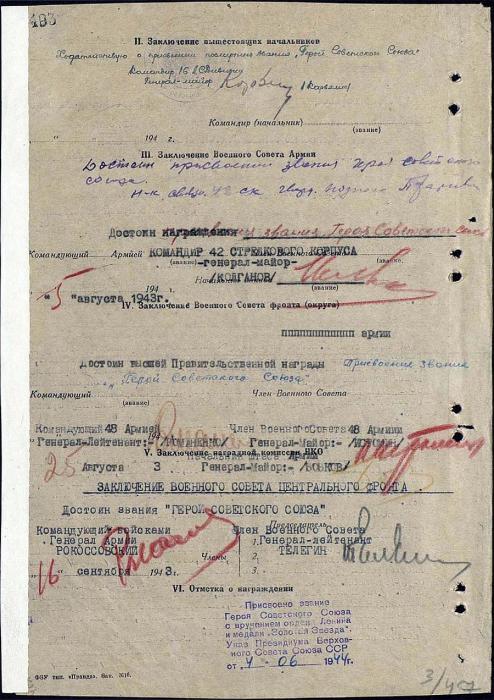 493
II. Заключение вышестоящих начальников
Ходатайствую о присвоении посмертно звания „Герой Советского Союза"
Командир 162 СДивизии
Генерал-майор
Командир (начальник)
(звание)
" " 194 г.
III. Заключение Военного Совета Армии
Достоин присвоения звания героя советского
союза.
42 ск гвард.
Достоин награждения звания Героя Советского Союза
Командующий Армией КОМАНДИР 42 СТРЕЛКОВОГО КОРПУСА
(звание) -генерал-майор- (звание)
/КОЛГАНОВ/
194 г.
"5 "августа 1943г.
IV. Заключение Военного Совета фронта (округа)
армии
Достоин высшей Правительственной награды присвоение звания
„Герой Советского Союза"
Командующий Член Военного Совета
(звание)
Командующий 48 Армией Член ВоенногоСовета 48 Армии
Генерал-Лейтенант:- /РОМАНЕНКО/ Генерал-Майор:- /ИСТОМИН/
V. Заключение наградной комиссии НКО
25 Августа 3 Генерал-Майор:- /БОБКОВ/
ЗАКЛЮЧЕНИЕ ВОЕННОГО СОВЕТА ЦЕНТРАЛЬНОГО ФРОНТА
Достоин звания "ГЕРОЙ СОВЕТСКОГО СОЮЗА"
Председатель
Командующий войсками Член Военного Совета
Генерал Армии Члены 1. Генерал-лейтенант
РОКОССОВСКИЙ 2. ТЕЛЕГИН
3.
"16" сентября 1943г.
VI. Отметка о награждении
Присвоено звание
Героя Советского Союза
с вручением орден Ленина
и медали „Золотая Звезда".
Указ Президиума Верхов-
ного Совета Союза ССР
от 4 06 1944г.
ФБУ тип. «Правда». Зак.
3/457